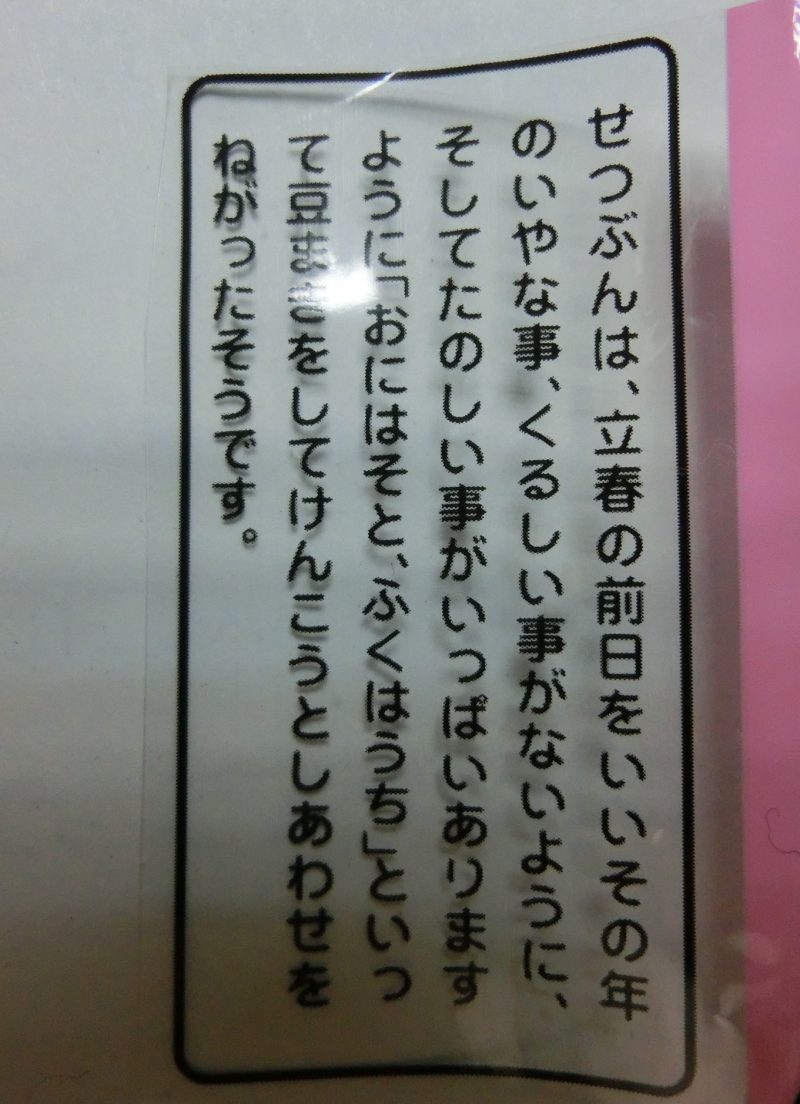 せつぶんは、立春の前日をいいその年
のいやな事、くるしい事がないように、
そしてたのしい事がいっぱいあります
ように「おにはそと、ふくはうち」といっ
て豆まきをしてけんこうとしあわせを
ねがったそうです。